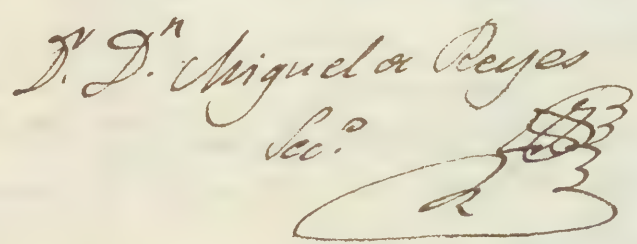 Dr. Dn. Miguel de Reyes
Sec.o